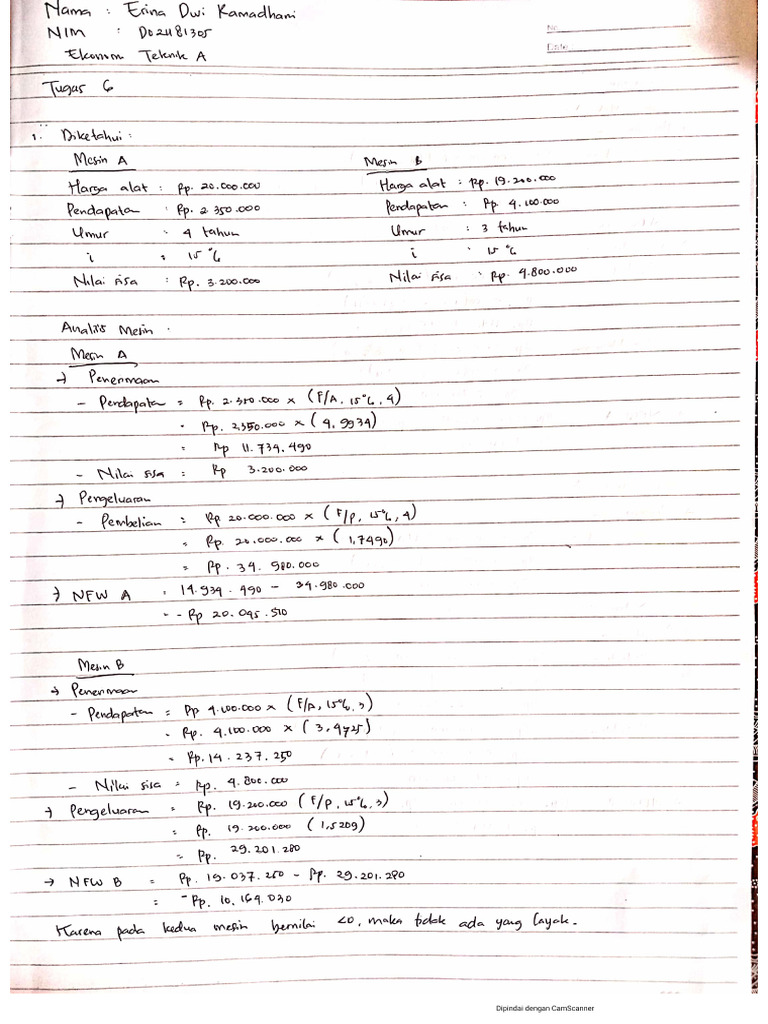 Nama : Erina Dwi Ramadhani
NIM : D02481305
No
Date
Ekonom Teknik A
Tugas 6
1. Diketahui :
Mesin A
Mesin B
Harga alat : Rp. 20.000.000
Harga alat : Rp. 19.200.000
Pendapatan : Rp. 2.350.000
Pendapatan : Rp 4.100.000
Umur : 4 tahun
Umur : 3 tahun
i = 15 %
i : 15 %
Nilai sisa : Rp. 3.200.000
Nilai sisa : Rp. 4.800.000
Analisis Mesin :
Mesin A
→ Penerimaan
- Pendapatan = Rp. 2.350.000 × (F/A, 15%, 4)
= Rp. 2.350.000 × (4,9934)
= Rp 11.734.490
- Nilai sisa = Rp 3.200.000
→ Pengeluaran
- Pembelian = Rp 20.000.000 × (F/P, 15%, 4)
= Rp. 20.000.000 × (1,7490)
= Rp. 34.980.000
→ NFW A = 14.934.490 - 34.980.000
= - Rp 20.045.510
Mesin B
→ Penerimaan
- Pendapatan = Rp 4.100.000 × (F/A, 15%, 3)
= Rp. 4.100.000 × (3,4725)
= Rp. 14.237.250
- Nilai sisa = Rp. 4.800.000
→ Pengeluaran = Rp. 19.200.000 (F/P, 15%, 3)
= Rp. 19.200.000 (1,5209)
= Rp. 29.201.280
→ NFW B = Rp. 19.037.250 - Rp. 29.201.280
= -Rp. 10.164.030
Karena pada kedua mesin bernilai <0, maka tidak ada yang layak.
Dipindai dengan CamScanner